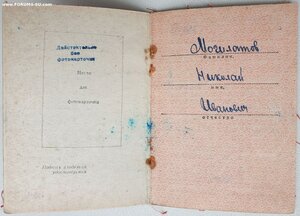 www.FORUMS-SU.com
Действительно
без
фотокарточки
Место
для
фотокарточки
Подпись владельца
удостоверения
Могилатов
фамилия,
Николай
имя,
Иванович
отчество